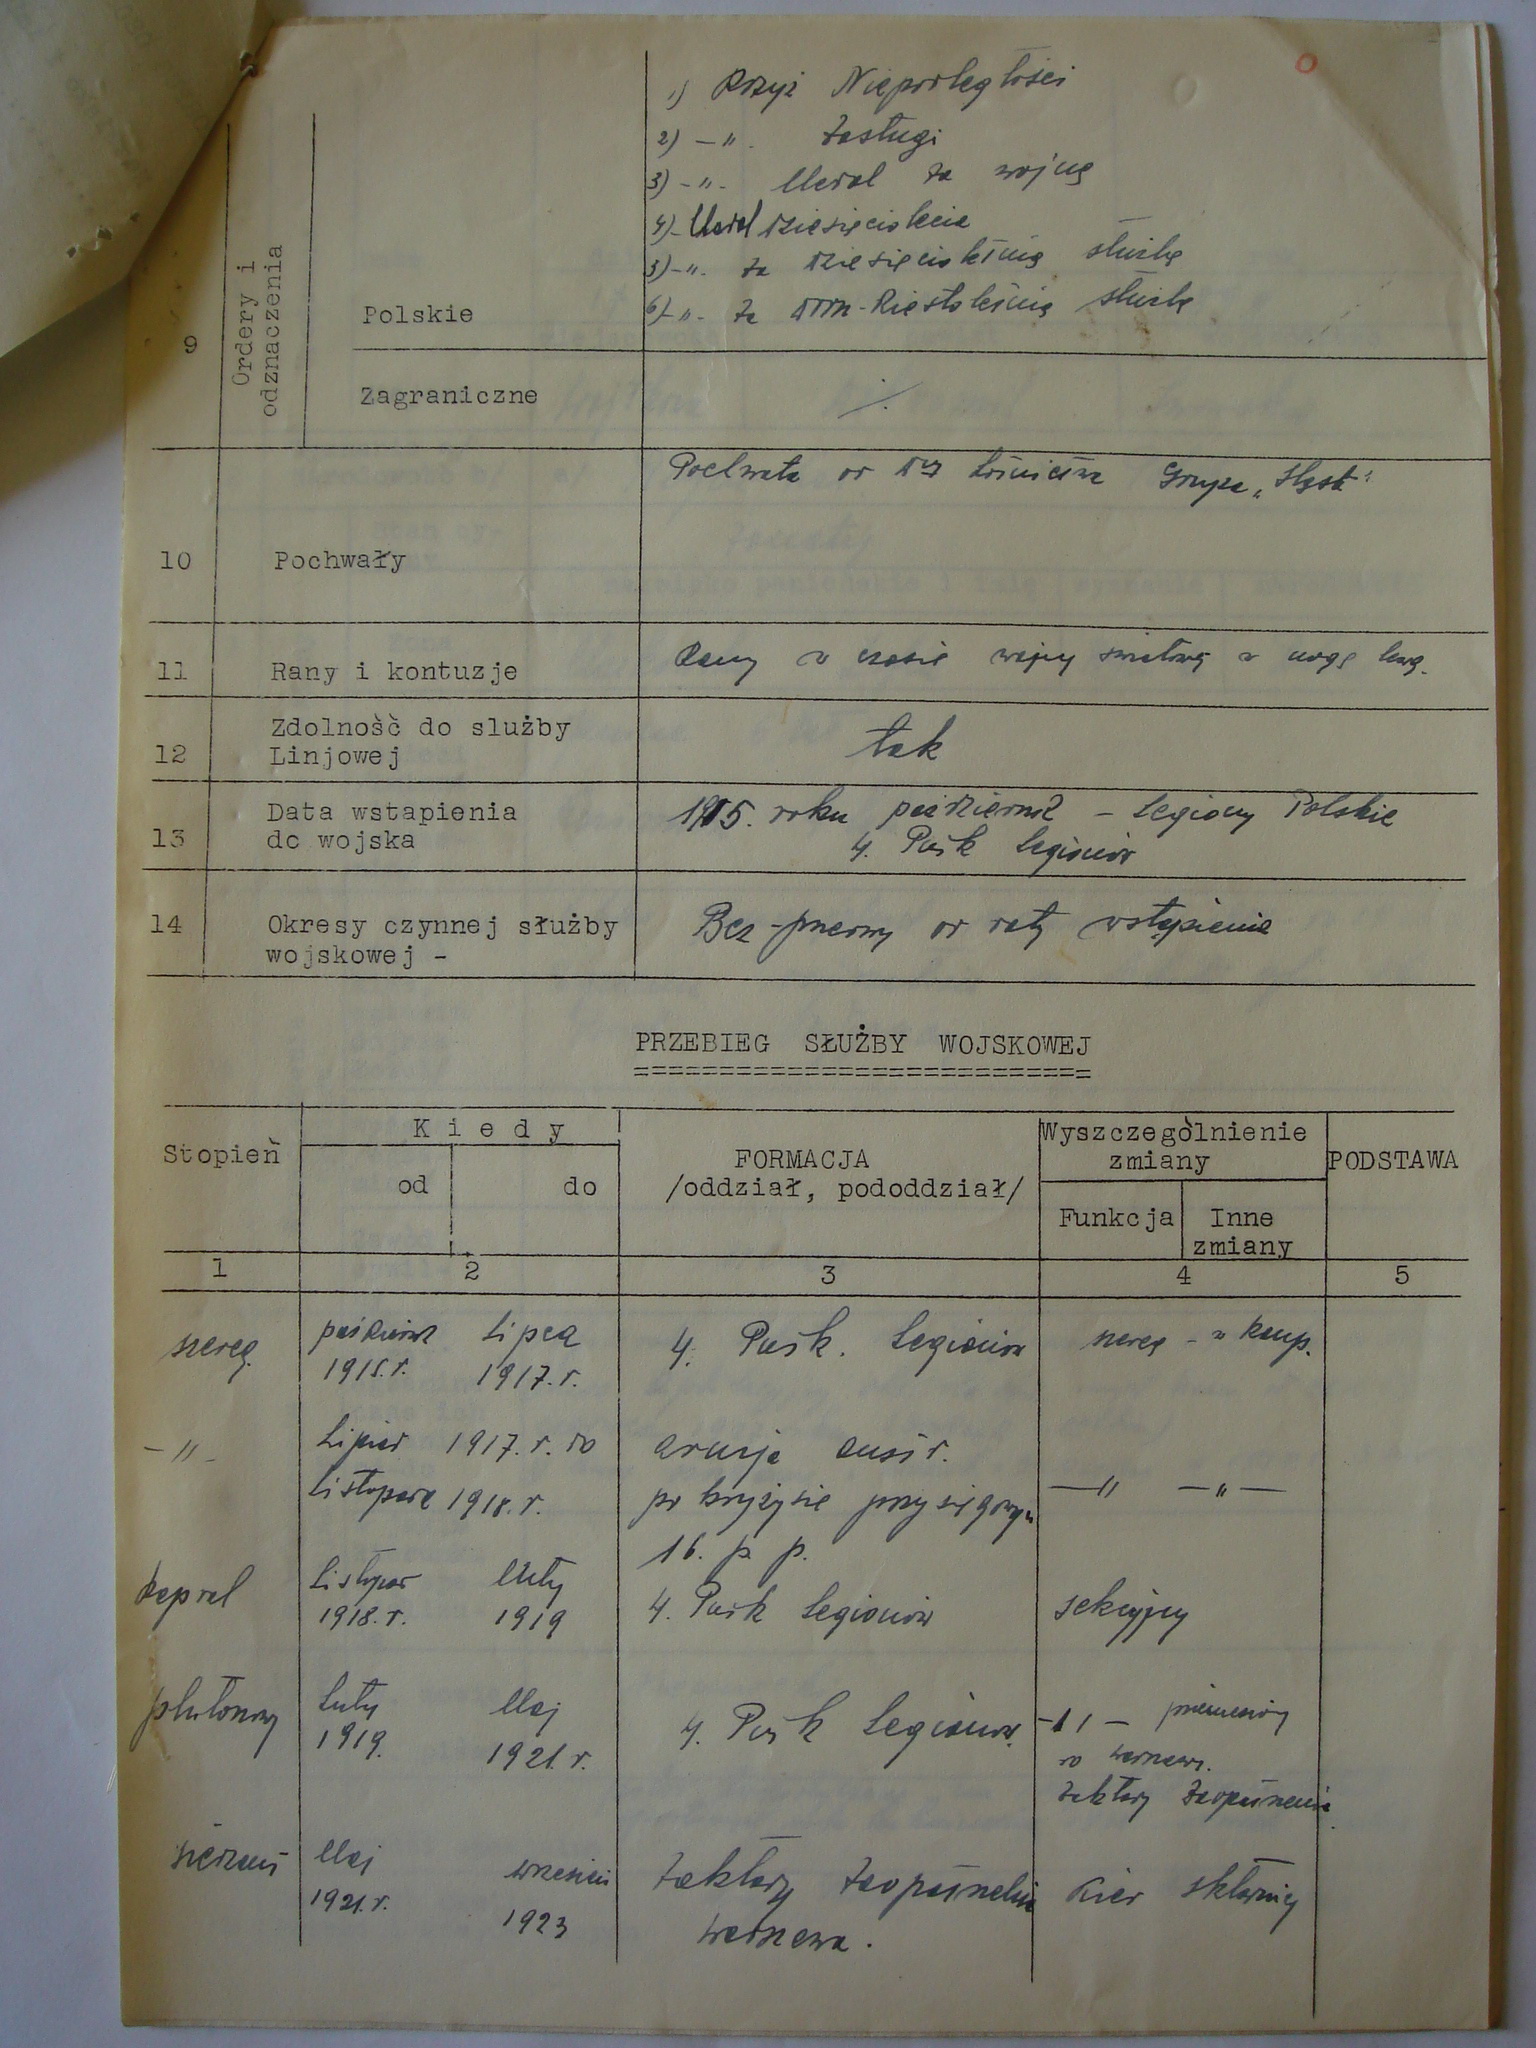 1) Krzyż Niepodległości
2) -"- Zasługi
3) -"- Medal za wojnę
4) - Medal dziesięciolecia
5) -"- za dziesięcioletnią służbę
6) -"- za
służbę
9
Ordery i
odznaczenia
Polskie
Zagraniczne
./.
10
Pochwały
Pochwała od
Lotnictwa Grupa "Śląsk"
11
Rany i kontuzje
Ranny w czasie wojny światowej w nogę lewą.
12
Zdolność do slużby
Linjowej
tak
13
Data wstapienia
do wojska
1915. roku październik - Legiony Polskie
4. Pułk Legionów
14
Okresy czynnej służby
wojskowej -
Bez przerwy od daty wstąpienia
PRZEBIEG SŁUŻBY WOJSKOWEJ
===========================
Stopień
Kiedy
od
do
FORMACJA
/oddział, pododdział/
Wyszczególnienie
zmiany
Funkcja
Inne
zmiany
PODSTAWA
1
2
3
4
5
szereg.
październ. 1915.r.
Lipca 1917.r.
4. Pułk. Legionów
szereg - w komp.
-"-
Lipiec 1917.r. do
Listopada 1918.r.
armja austr.
po kryzysie przysięgowym
16. p. p.
-"- -"-
kapral
Listopad 1918.r.
Luty 1919
4. Pułk Legionów
sekcyjny
plutonowy
Luty 1919.
Maj 1921.r.
4. Pułk Legionów.
-"- przeniesiony
do Warszawy.
Zakłady Zaopatrzenia
sierżant
Maj 1921.r.
wrzesień 1923
Zakłady Zaopatrzenia
Warszawa.
Kier składnicy